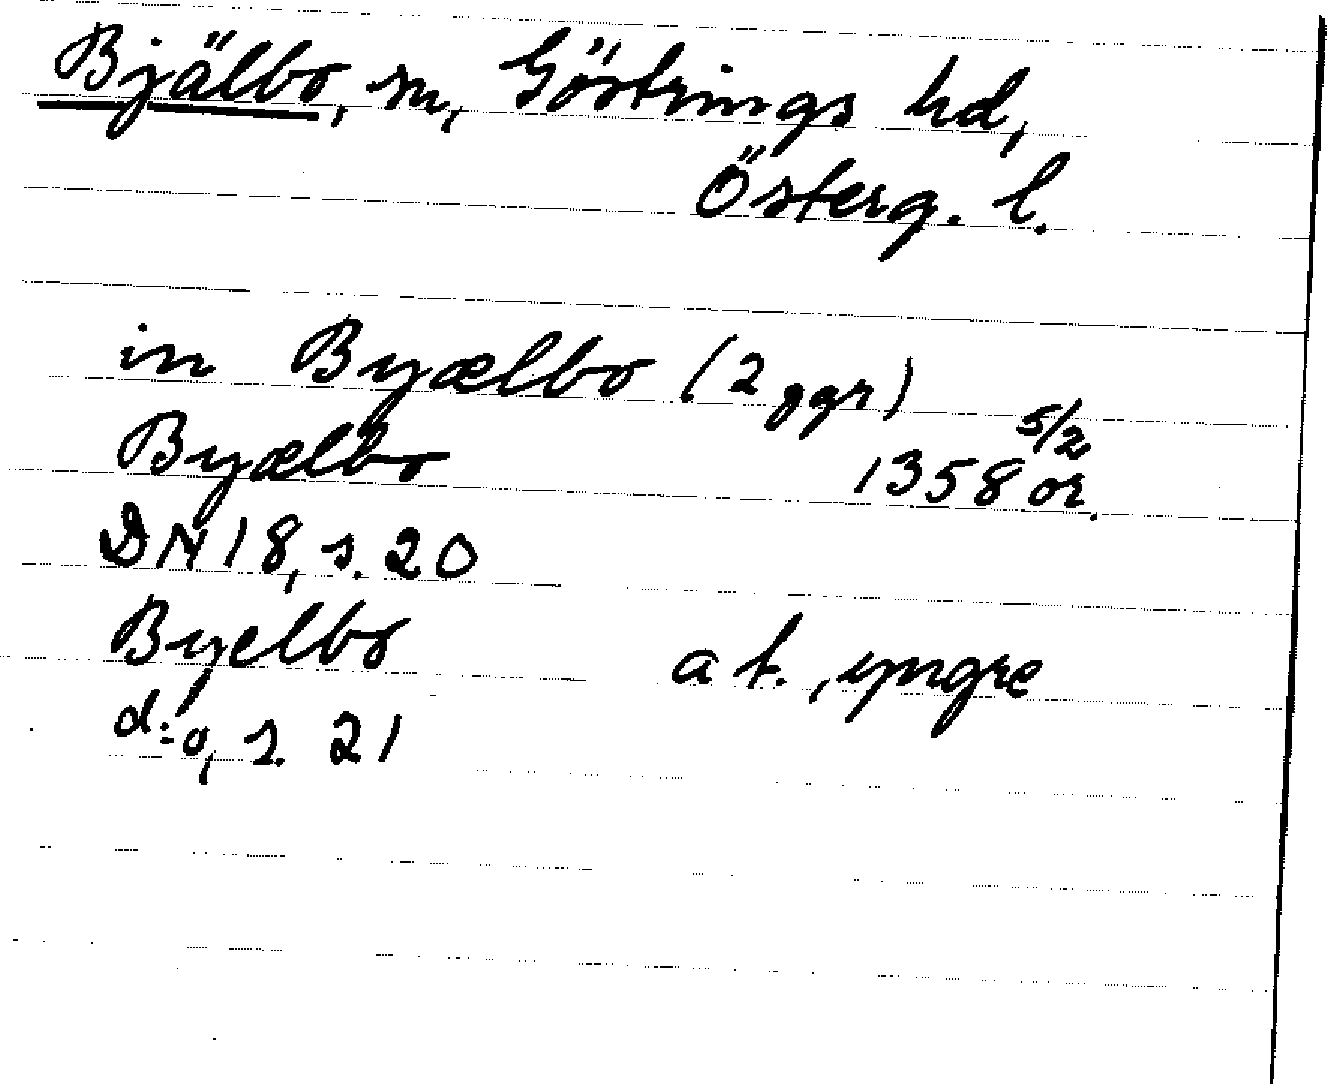 Bjälbo, sn, Göstrings hd,
Österg. l.
in Byælbo (2 ggr)
Byælbo 1358 5/2 or.
DN 18, s. 20
Byelbo at., yngre
d:o, s. 21